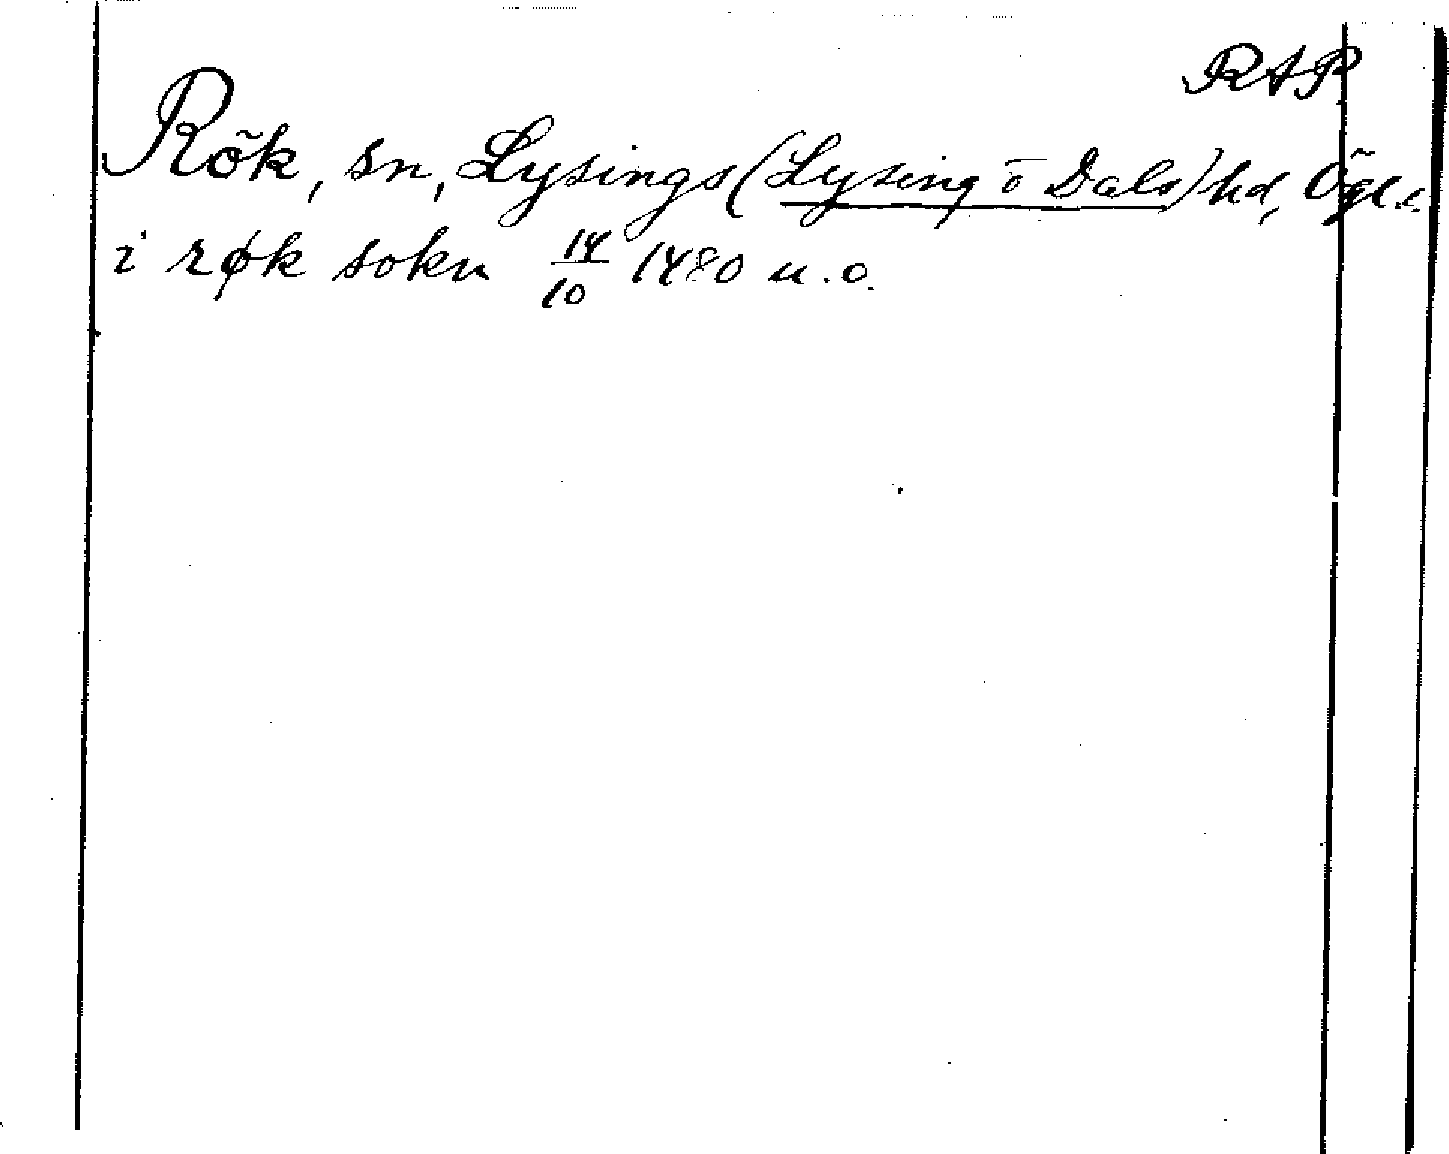 RAP
Rök, sn, Lysings (Lysing o Dals) hd, Ögl.
i røk sokn 14/10 1480 u.o.